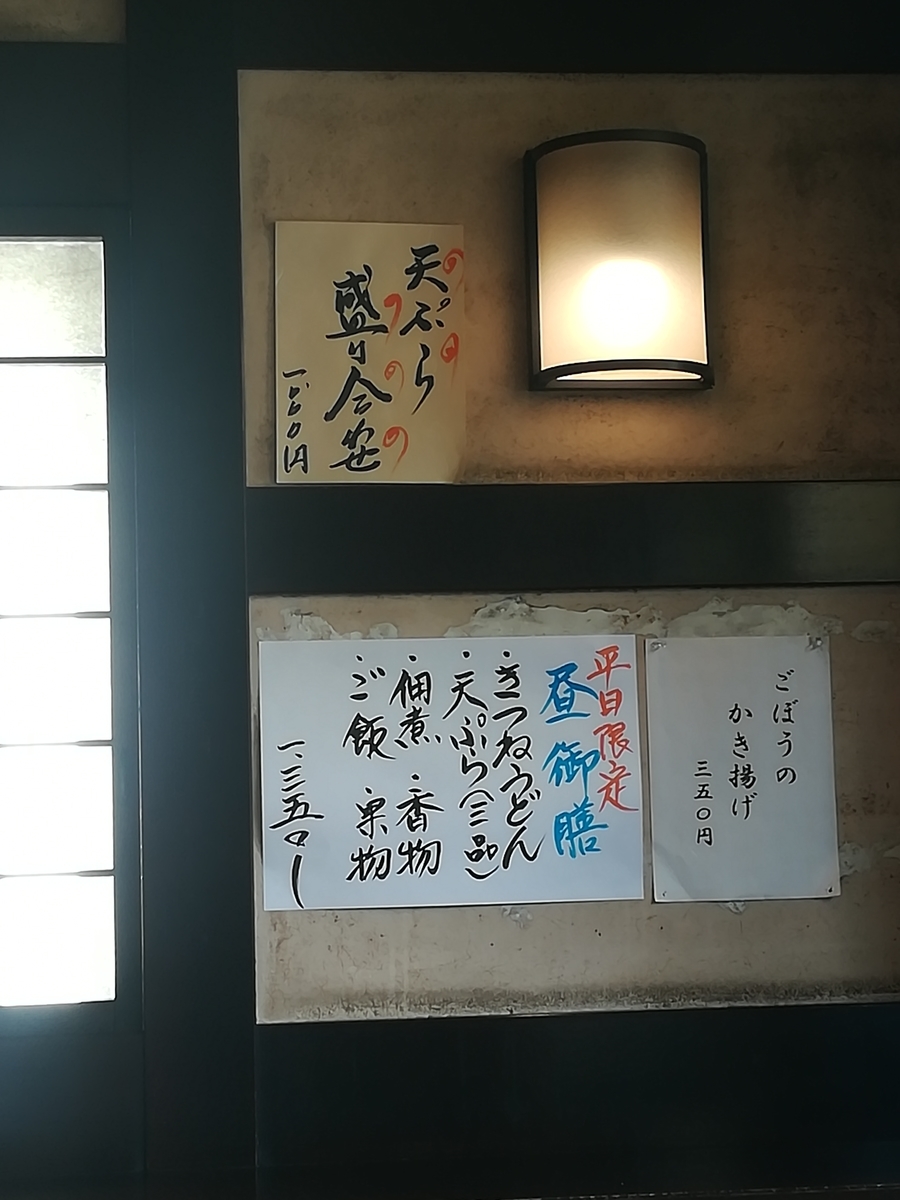 天ぷら
盛り合せ
平日限定
昼御膳
・きつねうどん
・天ぷら(三品)
・佃煮 ・香物
・ご飯 ・果物
一、三五〇ー
ごぼうの
かき揚げ
三五〇円